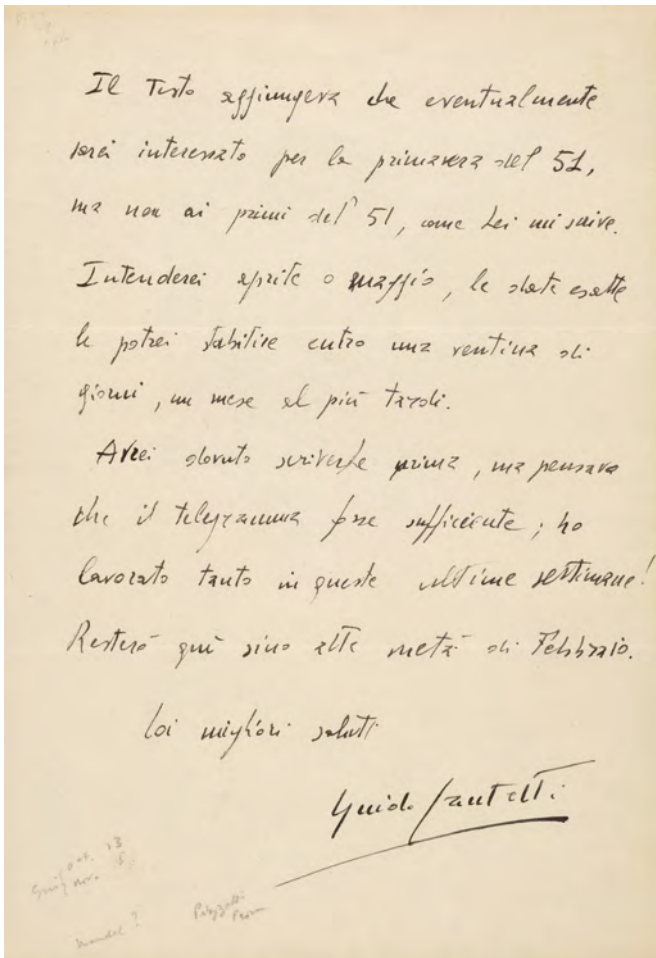 Il Testo aggiungeva che eventualmente
sarei interessato per la primavera del 51,
ma non ai primi del 51, come Lei mi scrive.
Intenderei aprile o maggio, le date esatte
le potrei stabilire entro una ventina di
giorni, un mese al più tardi.
Avrei dovuto scriverle prima, ma pensavo
che il telegramma fosse sufficiente; ho
lavorato tanto in queste ultime settimane!
Resterò quì sino alla metà di Febbraio.
Coi migliori saluti
Guido Cantelli
oct. 23
nov. 5
Mandel ?